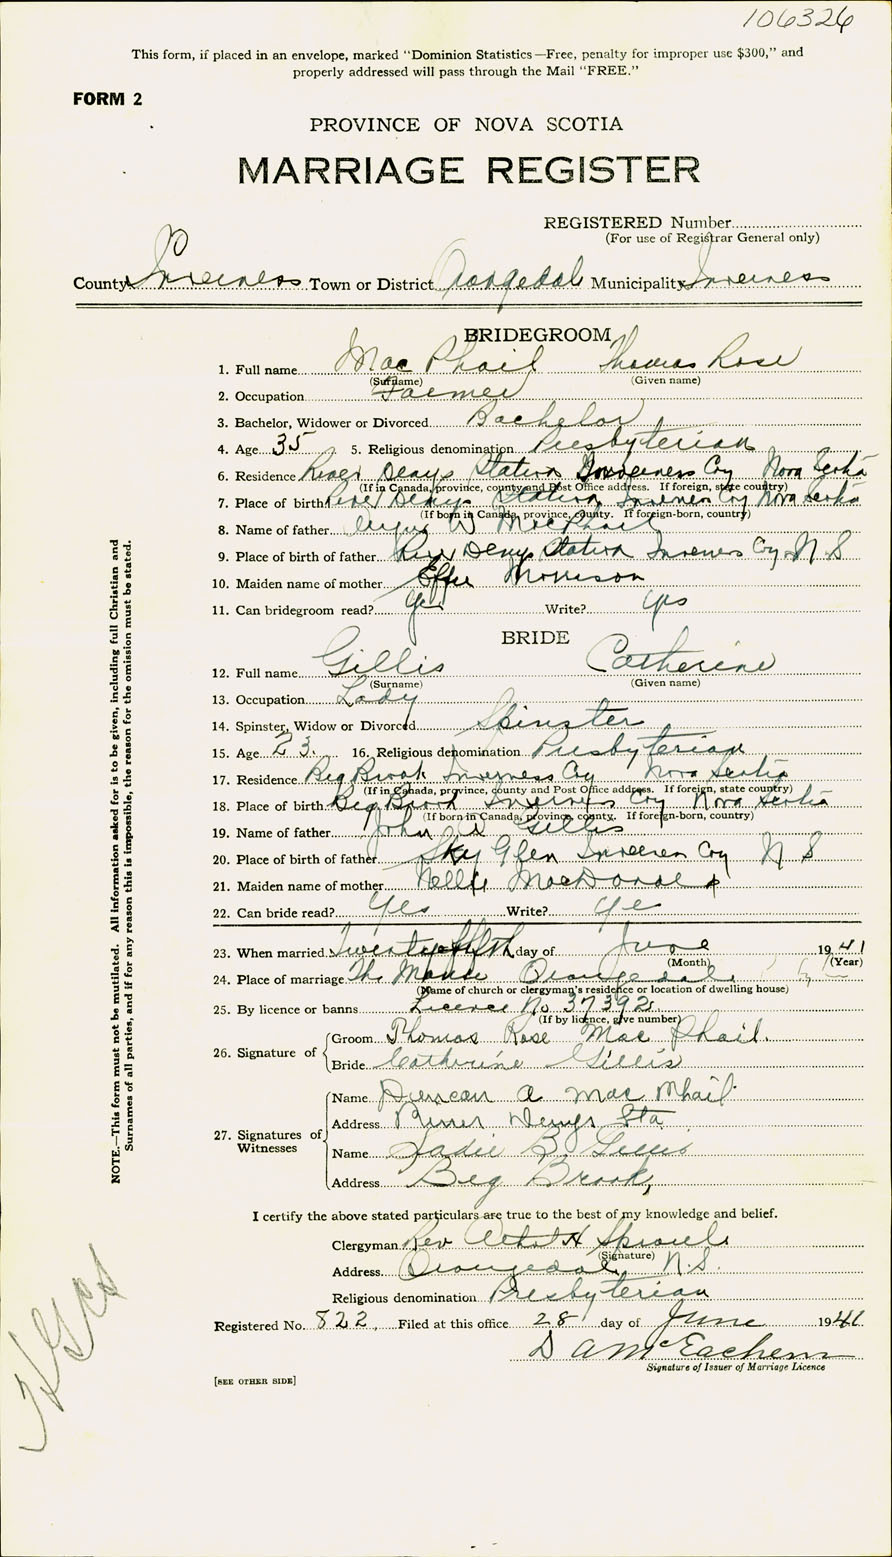 106326
This form, if placed in an envelope, marked "Dominion Statistics—Free, penalty for improper use $300," and
properly addressed will pass through the Mail "FREE."
FORM 2
PROVINCE OF NOVA SCOTIA
MARRIAGE REGISTER
REGISTERED Number
(For use of Registrar General only)
County Inverness Town or District Orangedale Municipality Inverness
BRIDEGROOM
1. Full name Mac Phail Thomas Rose
(Surname) (Given name)
2. Occupation Farmer
3. Bachelor, Widower or Divorced Bachelor
4. Age 35 5. Religious denomination Presbyterian
6. Residence River Denys Station Inverness Coy Nova Scotia
(If in Canada, province, county and Post Office address. If foreign, state country)
7. Place of birth River Denys Station Inverness Coy Nova Scotia
(If born in Canada, province, county. If foreign-born, country)
8. Name of father Angus MacPhail
9. Place of birth of father River Denys Station Inverness Coy N S
10. Maiden name of mother Effie Morrison
11. Can bridegroom read? Yes Write? Yes
BRIDE
12. Full name Gillis Catherine
(Surname) (Given name)
13. Occupation Lady
14. Spinster, Widow or Divorced Spinster
15. Age 23. 16. Religious denomination Presbyterian
17. Residence Big Brook Inverness Coy Nova Scotia
(If in Canada, province, county and Post Office address. If foreign, state country)
18. Place of birth Big Brook Inverness Coy Nova Scotia
(If born in Canada, province, county. If foreign-born, country)
19. Name of father John Gillis
20. Place of birth of father Sky Glen Inverness Coy N S
21. Maiden name of mother Nellie MacDonald
22. Can bride read? Yes Write? Yes
23. When married Twentyfifth day of June 1941
(Month) (Year)
24. Place of marriage The Manse Orangedale
(Name of church or clergyman's residence or location of dwelling house)
25. By licence or banns Licence No 37392
(If by licence, give number)
26. Signature of Groom Thomas Rose Mac Phail.
Bride Catherine Gillis
27. Signatures of Witnesses
Name Duncan A Mac Phail
Address River Denys Sta
Name Sadie B Gillis
Address Big Brook,
I certify the above stated particulars are true to the best of my knowledge and belief.
Clergyman Rev H Sproule
(Signature)
Address Orangedale, N.S.
Religious denomination Presbyterian
Registered No. 822, Filed at this office 28 day of June 1941
D A McEachern
Signature of Issuer of Marriage Licence
[SEE OTHER SIDE]
NOTE.—This form must not be mutilated. All information asked for is to be given, including full Christian and
Surnames of all parties, and if for any reason this is impossible, the reason for the omission must be stated.